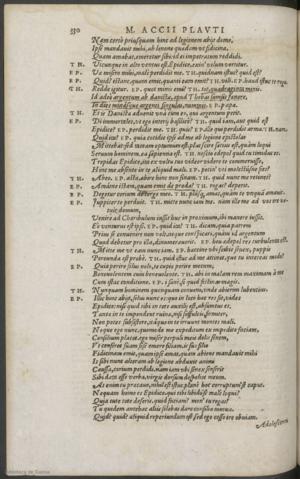 330 M. ACCII PLAVTI
Nam certò priusquam hinc ad legionem abit domo,
Ipse mandauit mihi, ab lenone quædam ut fidicina,
Quam amabat, emeretur sibi: id ei impetratum reddidi.
TH. Vtcunque in alto uentus est Epidice, exin' uelum uertitur.
EP. Væ misero mihi, malè perdidit me. TH. quidnam
EP. Quid? istanc, quam emit, quanti eam emit? TH.
TH.
Id adeò argentum ab danista, apud Thebas sumpsit fœnore,
In dies minásque argenti singulas, nummis. EP. papæ.
TH. Et is Danista aduenit unà cum eo, qui argentum petit.
EP. Di immortales, ut ego interij basilicè! TH. quid iam, aut quid est
Epidice? EP. perdidit me. TH. quis? EP. ille qui perdidit arma: TH. nam
Quid ita? EP. quia cotidie ipse ad me ab legione epistolas
Mittebat: sed taceam optumum est, plus scire satius est, quàm loqui
Seruum hominem, ea sapientia est. TH. nescio edepol quid tu timidus es.
Trepidas Epidice, ita ego uultu tuo uideor uidere te commeruisse,
Hinc me absente in te aliquid mali. EP. potin' ut molestus ne sies?
TH. Abeo. EP. asta, abire hinc non sinam. TH. quid nunc me retines?
EP. Amátne istam, quam emit de præda? TH. rogas? deperit.
EP. Degetur corium de tergo meo. TH. plúsq; amat, quàm te unquam amauit.
EP. Iuppiter te perduit. TH. mitte nunc iam me. nam ille me uotuit
domum,
Venire ad Charibulum iussit huc in proximum, ibi manere iussit.
Eo uenturus est ipsus. EP. quid ita? TH. dicam, quia patrem
Prius se conuenire non uolt, neque conspicari, quàm id argentum
Quod debetur pro illa, dinumerauerit. EP. heu edepol res turbulentas.
TH. Mitte me ut eam nunciam. EP. hæccine ubi scibit senex, puppis
Pereunda est probè. TH. quid istuc ad me attinet, quo tu intereas modo?
EP. Quia perire solus nolo, te cupio perire mecum,
Beneuolentem cum beneuolente. TH. abi in malam rem maximam à me
Cum istac conditione. EP. i sanè, si quid festinas magis.
TH. Nunquam hominem quenquam conueni, unde abierim lubentius.
EP. Illic hinc abiit, solus nunc es: quo in loco hæc res sit, uides
Epidice: nisi quid tibi in tete auxilij est, absumptus es.
Tantæ in te impendent ruinæ, nisi suffulcis firmiter,
Non potes subsistere, itáque in te irruunt montes mali.
Neque ego nunc, quomodo me expeditum ex impedito faciam,
Consilium placet. ego miser perpuli meis dolis senem,
Vt censeret suam sese emere filiam, is suo filio
Fidicinam emit, quam ipse amat, quam abiens mandauit mihi
Is sibi nunc alteram ab legione abduxit animi
Caussa, corium perdidi, nam ubi senex senserit
Sibi data esse uerba, uirgis dorsum depoliet meum.
At enim tu præcaue, nihil est istuc planè hoc corruptum est caput.
Nequam homo es Epidice. qui tibi lubido est malè loqui?
Quia tute tete deseris. quid faciam? men' tu rogas?
Tu quidem antehac alijs solebas dare consilia mutua.
Quid? quid? aliquid reperiundum est sed ego cesso ire obuiam.
Adolescenti